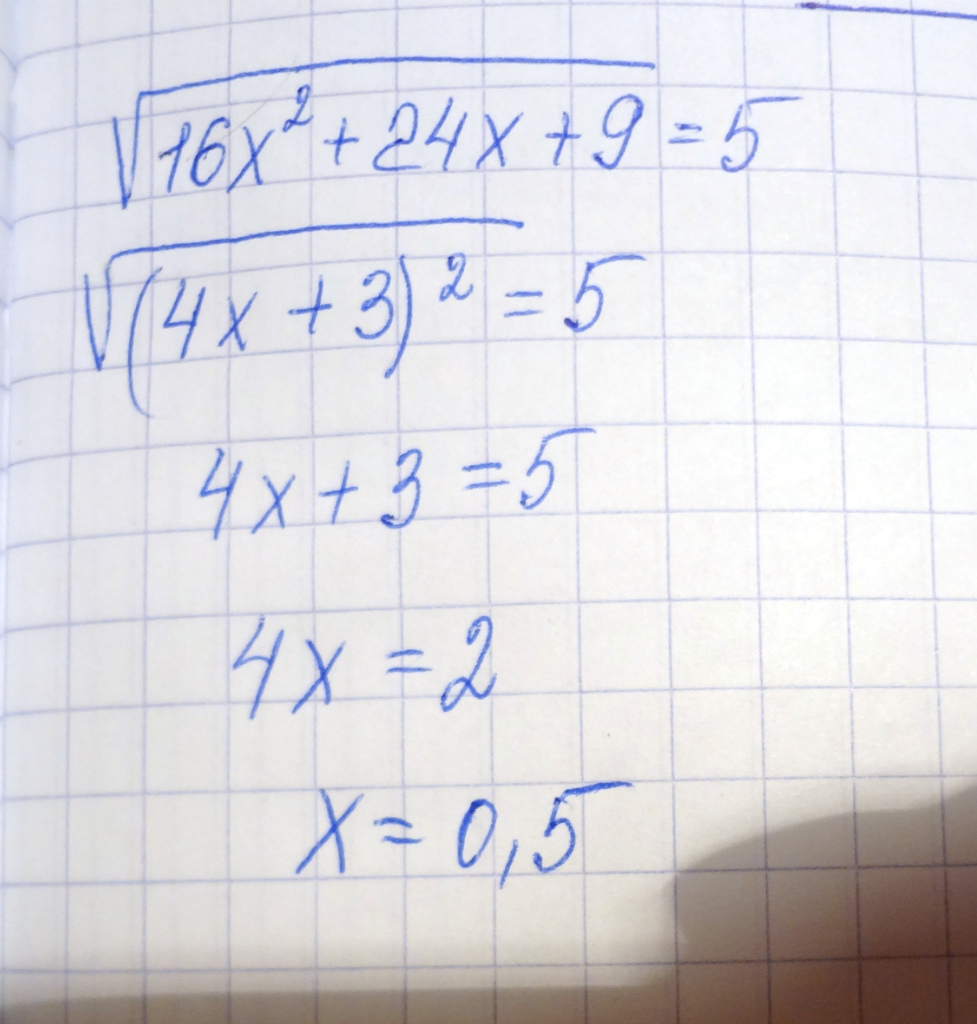 √(16x² + 24x + 9) = 5
√((4x + 3)²) = 5
4x + 3 = 5
4x = 2
x = 0,5